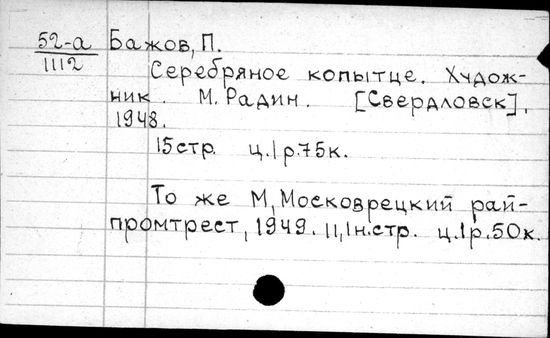 52-а Бажов, П.
1112
Серебряное копытце. Худож-
ник. М. Радин. [Свердловск],
1948.
15 стр. ц. 1 р. 75 к.
То же М, Москворецкий рай-
промтрест, 1949. 11, 1 н. стр. ц. 1 р. 50 к.